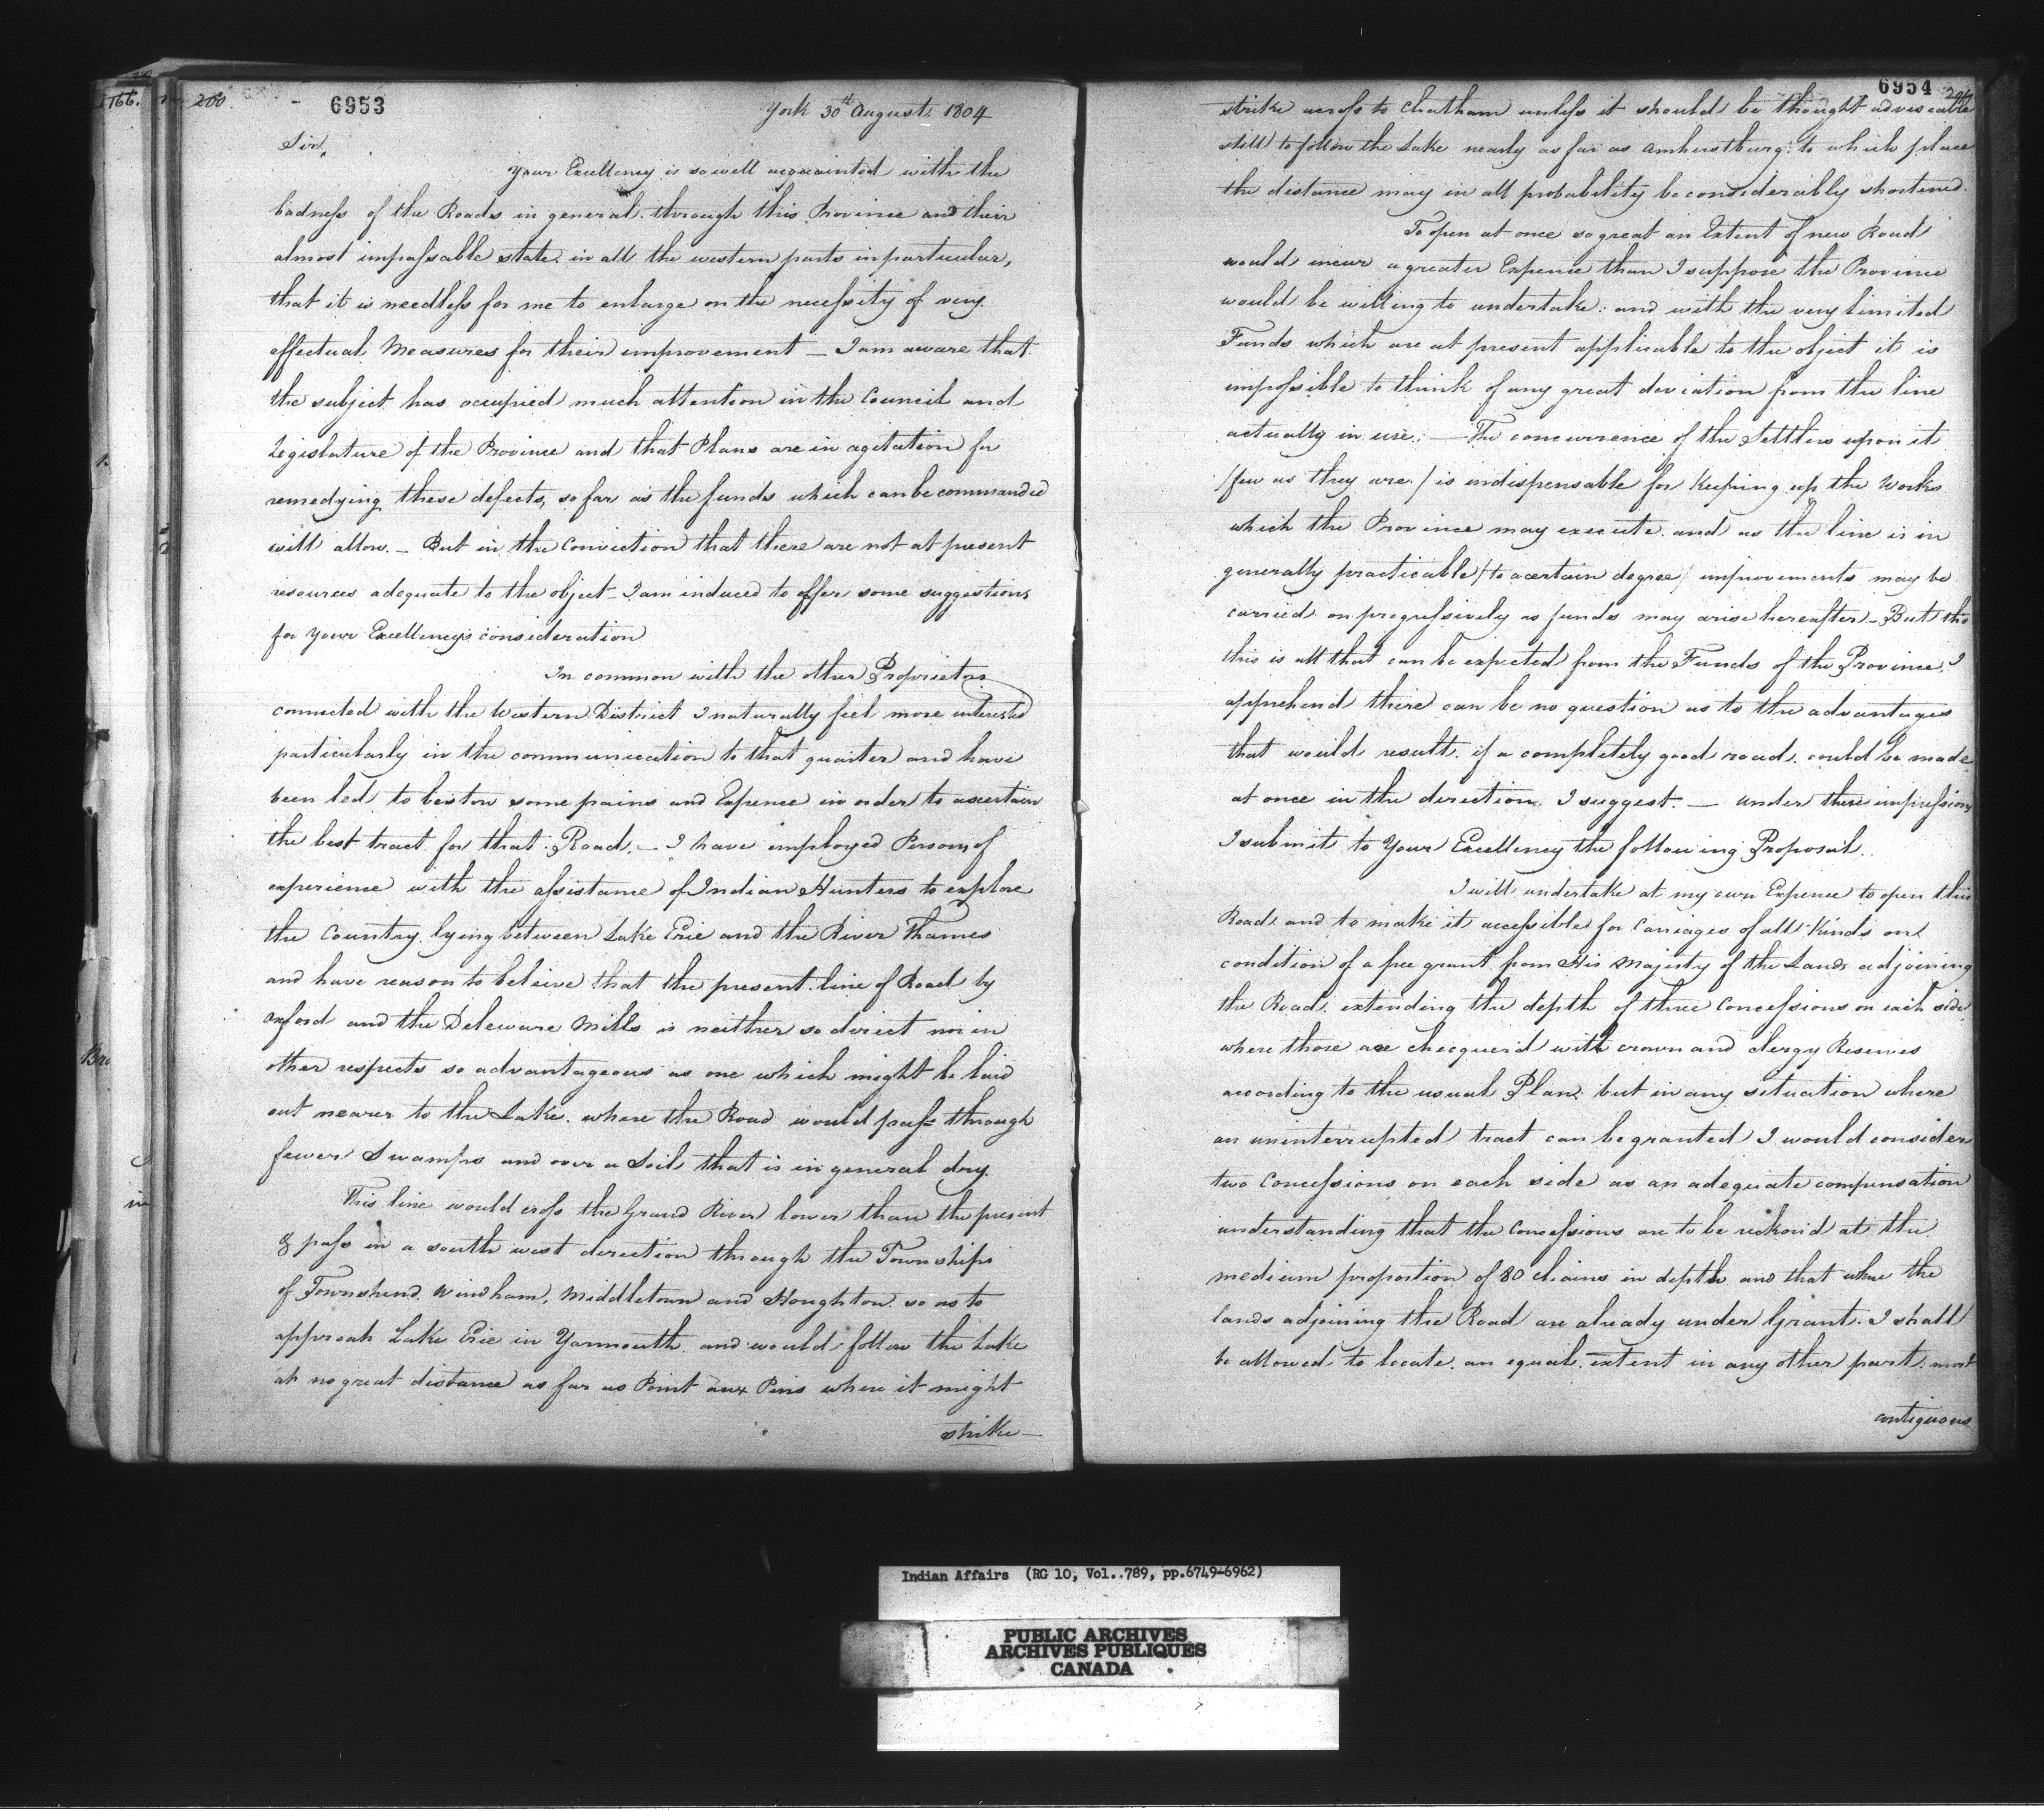 166.
200.
6953
York 30th August 1804
Sir,
Your Excellency is so well acquainted with the
badness of the Roads in general through this Province and their
almost impassable state in all the western parts in particular,
that it is needless for me to enlarge on the necessity of very
effectual Measures for their improvement — I am aware that
the subject has occupied much attention in the Council and
Legislature of the Province and that Plans are in agitation for
remedying these defects, so far as the funds which can be commanded
will allow. — But in the Conviction that there are not at present
resources adequate to the object — I am induced to offer some suggestions
for your Excellency's consideration
In common with the other Proprietors
connected with the Western District I naturally feel more interested
particularly in the communication to that quarter and have
been led to bestow some pains and Expence in order to ascertain
the best tract for that Road. — I have employed Persons of
experience with the assistance of Indian Hunters to explore
the Country lying between Lake Erie and the River Thames
and have reason to beleive that the present line of Road by
Oxford and the Deleware Mills is neither so direct nor in
other respects so advantageous as one which might be laid
out nearer to the Lake. where the Road would pass through
fewer Swamps and over a Soil that is in general dry.
This line would cross the Grand River lower than the present
& pass in a south west direction through the Townships
of Townshend, Windham, Middletown and Houghton so as to
approach Lake Erie in Yarmouth and would follow the Lake
at no great distance as far as Point aux Pins where it might
strike —
6954
strike across to Chatham unless it should be thought adviseable
still to follow the Lake nearly as far as Amherstburg: to which place
the distance may in all probability be considerably shortened.
To open at once so great an Extent of new Road
would incur a greater Expence than I suppose the Province
would be willing to undertake: and with the very limited
Funds which are at present applicable to the object it is
impossible to think of any great deviation from the line
actually in use: — The concurrence of the Settlers upon it
/few as they are/ is indispensable for Keeping up the Works
which the Province may execute. and as the line is in
generally practicable /to a certain degree/ improvements may be
carried on progressively as funds may arise hereafter — But tho
this is all that can be expected from the Funds of the Province, I
apprehend there can be no question as to the advantages
that would result if a completely good road could be made
at once in the direction I suggest. — under these impressions
I submit to Your Excellency the following Proposal.
I will undertake at my own Expence to open this
Road and to make it accessible for Carriages of all Kinds on
condition of a free grant from His Majesty of the Lands adjoining
the Road, extending the depth of three Concessions on each side
where those are checquer'd with crown and clergy Reserves
according to the usual Plan: but in any situation where
an uninterrupted tract can be granted I would consider
two Concessions on each side as an adequate compensation
understanding that the Concessions are to be reckon'd at the
medium proportion of 80 chains in depth and that where the
lands adjoining the Road are already under Grant. I shall
be allowed to locate an equal extent in any other part. most
contiguous
Indian Affairs (RG 10, Vol..789, pp.6749-6962)
PUBLIC ARCHIVES
ARCHIVES PUBLIQUES
CANADA